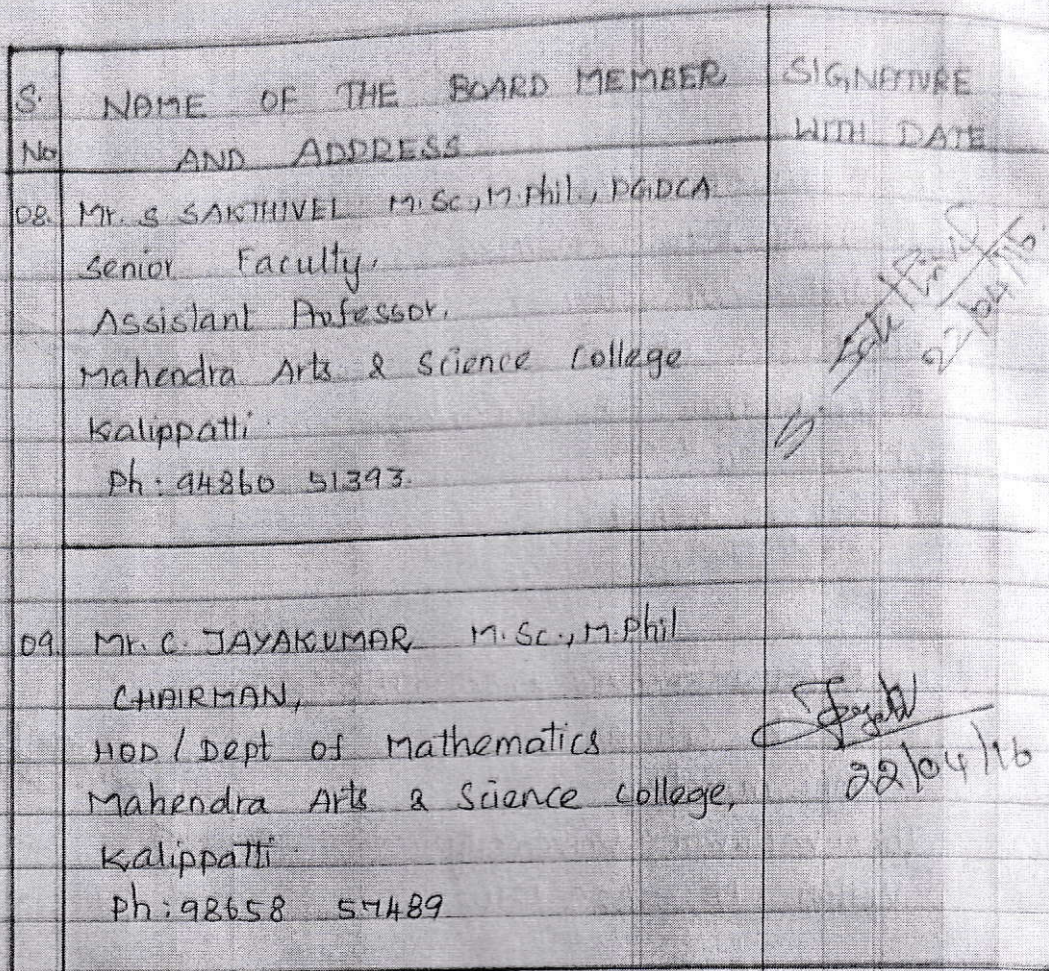 S. NAME OF THE BOARD MEMBER SIGNATURE
No AND ADDRESS WITH DATE
08. Mr. S SAKTHIVEL M.Sc., M.Phil., PGDCA
Senior Faculty,
Assistant Professor,
Mahendra Arts & Science College
Kalippatti
Ph: 94860 51393.
S.
22/04/16.
09. Mr. C. JAYAKUMAR M.Sc., M.Phil
CHAIRMAN,
HOD / Dept of Mathematics
Mahendra Arts & Science College,
Kalippatti
Ph: 98658 57489
22/04/16